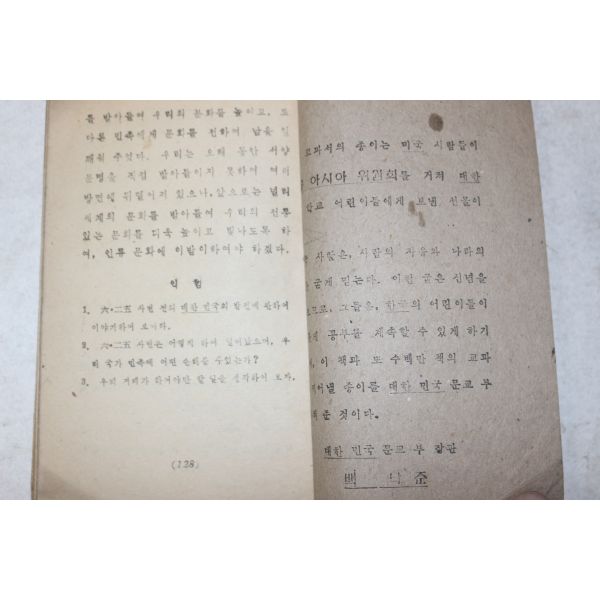 를 받아들여 우리의 문화를 높이고, 또
다른 민족에게 문화를 전하여 남을 일
깨워 주었다. 우리는 오래 동안 서양
문명을 직접 받아들이지 못하여 여러
방면에 뒤떨어져 있으나, 앞으로는 널리
세계의 문화를 받아들여 우리의 전통
있는 문화를 더욱 높이고 빛나도록 하
여, 인류 문화에 이바지하여야 하겠다.
익힘
1. 六·二五 사변 전의 대한 민국의 발전에 관하여
이야기하여 보아라.
2. 六·二五 사변은 어떻게 하여 일어났으며, 우
리 국가 민족에 어떤 손해를 주었는가?
3. 우리 겨레가 하여야만 할 일을 생각하여 보자.
(128)
교과서의 종이는 미국 사람들이
아시아 위원회를 거쳐 대한
학교 어린이들에게 보낸 선물이
사람은, 사람의 자유와 나라의
굳게 믿는다. 이런 굳은 신념을
므로, 그들은, 한국의 어린이들이
공부를 계속할 수 있게 하기
이 책과 또 수백만 책의 교과
종이를 대한 민국 문교 부
준 것이다.
대한 민국 문교 부 장관
백 낙 준